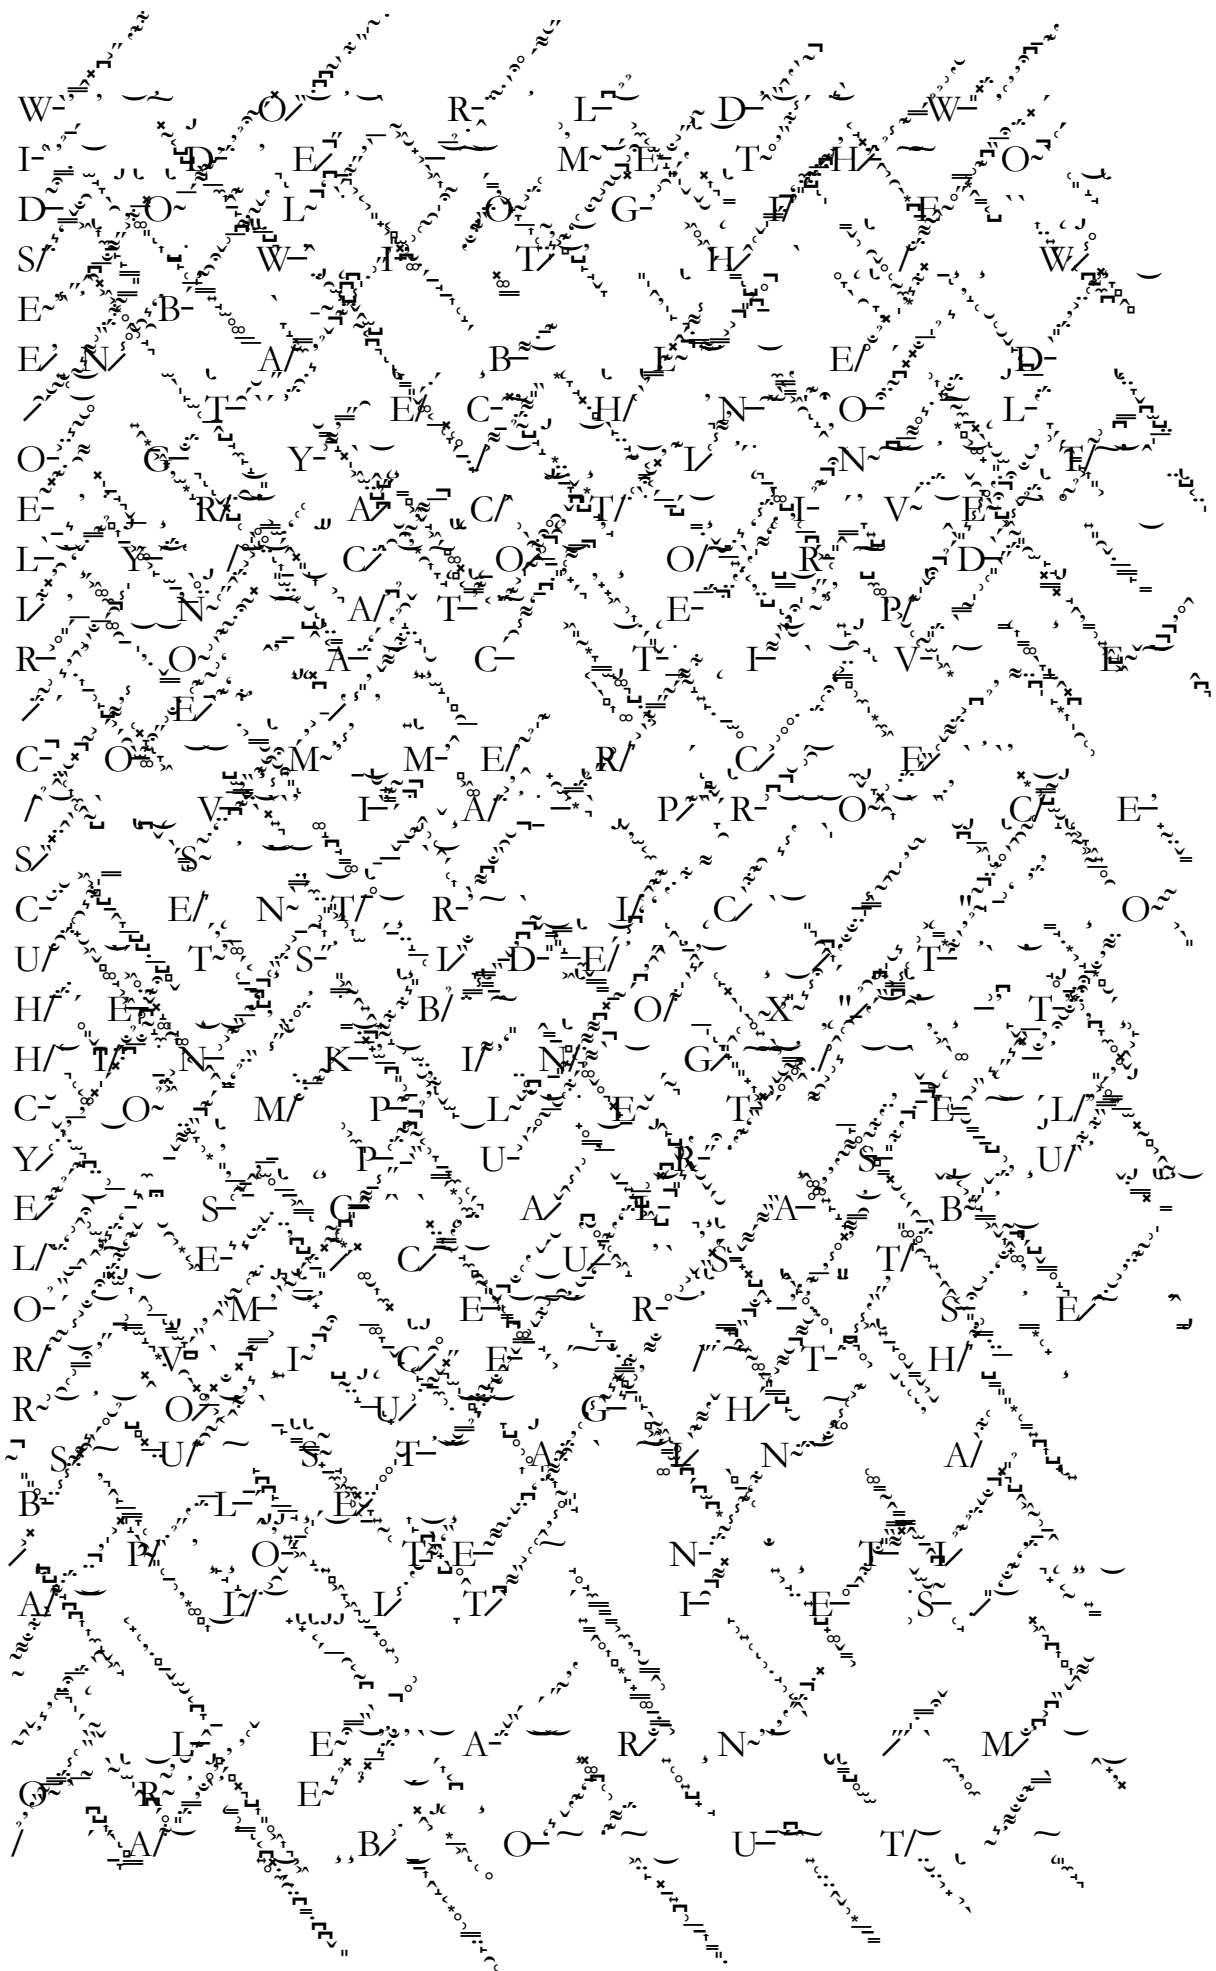 WORLDW
IDE METHO
DOLOGIE
S WITH W
EB-
ENABLED
TECHNOL
OGY INT
ERACTIVE
LY COORD
INATE P
ROACTIVE
E-
COMMERCE
VIA PROCE
SS-
CENTRIC "O
UTSIDE T
HE BOX" T
HINKING
COMPLETEL
Y PURSU
E SCALAB
LE CUST
OMER SE
RVICE TH
ROUGH
SUSTAINA
BLE
POTENTI
ALITIES
LEARN M
ORE
ABOUT